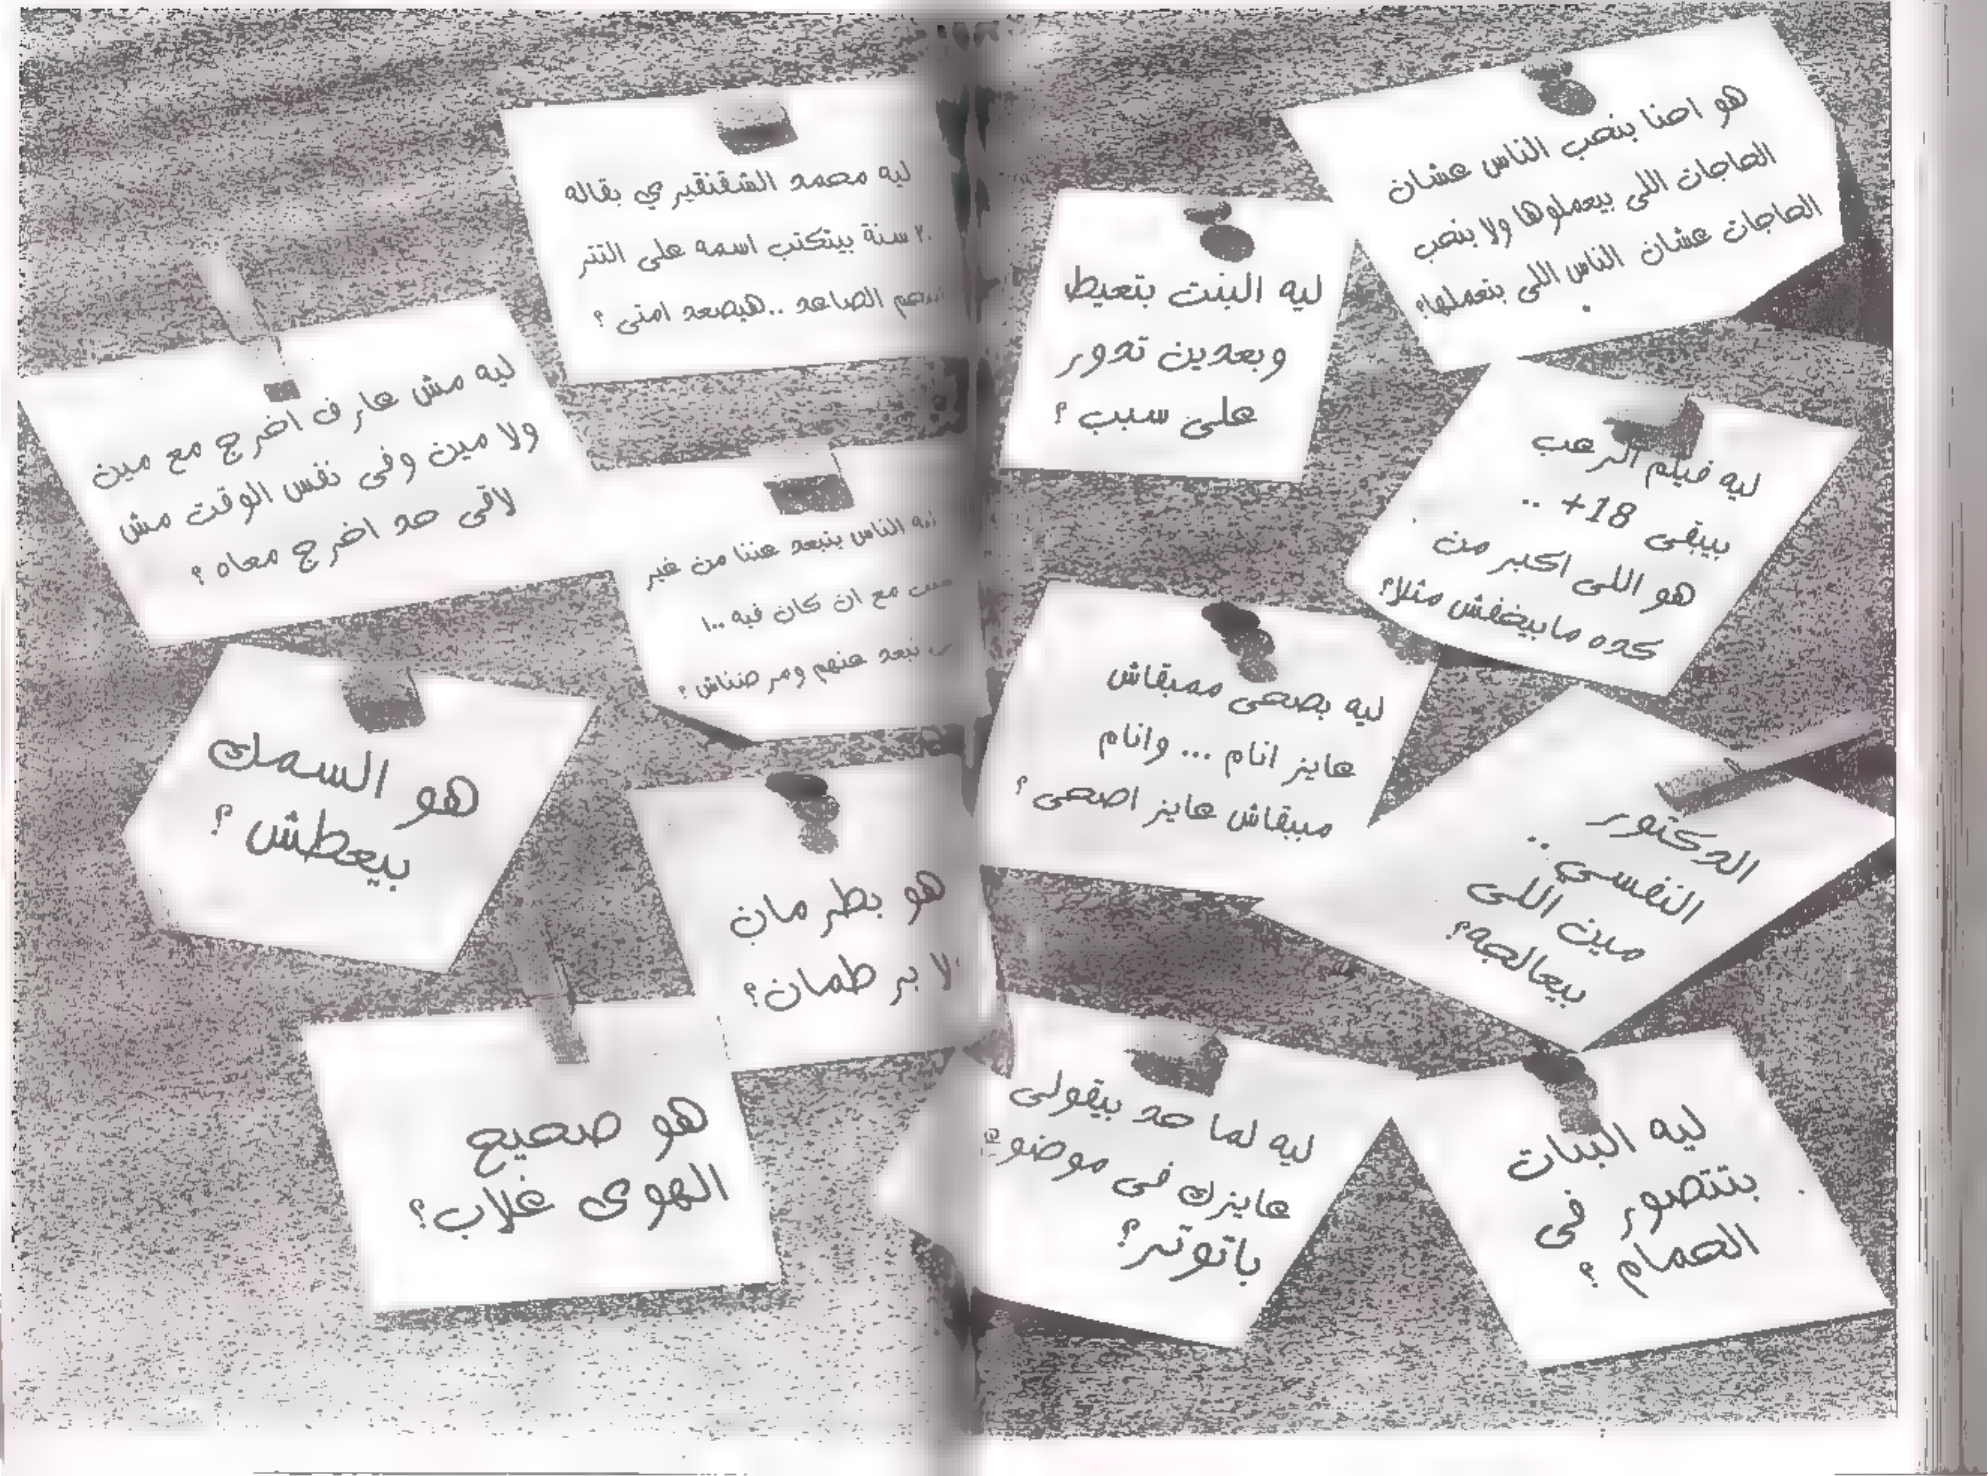 هو احنا بنحب الناس عشان
الحاجات اللى بيعملوها ولا بنحب
الحاجات عشان الناس اللى بتعملها؟
ليه البنت بتعيط
وبعدين تدور
على سبب ؟
ليه فيلم الرعب
بيبقى 18+ ..
هو اللى اكبر من
كده مابيخفش مثلا؟
ليه بصحى مببقاش
عايز انام ... وانام
مببقاش عايز اصحى ؟
الدكتور
النفسي ..
مين اللى
بيعالجه؟
ليه لما حد بيقولى
عايزك فى موضوع
باتوتر؟
ليه البنات
بتتصور فى
الحمام ؟
ليه محمد الشقنقيري بقاله
٢٠ سنة بيتكتب اسمه على التتر
الصاعد ..هيصعد امتى ؟
ليه مش عارف اخرج مع مين
ولا مين وفى نفس الوقت مش
لاقى حد اخرج معاه ؟
الناس بتبعد عننا من غير
مع ان كان فيه ١٠٠
نبعد عنهم ومرضناش ؟
هو السمك
بيعطش ؟
هو بطرمان
ولا برطمان؟
هو صحيح
الهوى غلاب؟